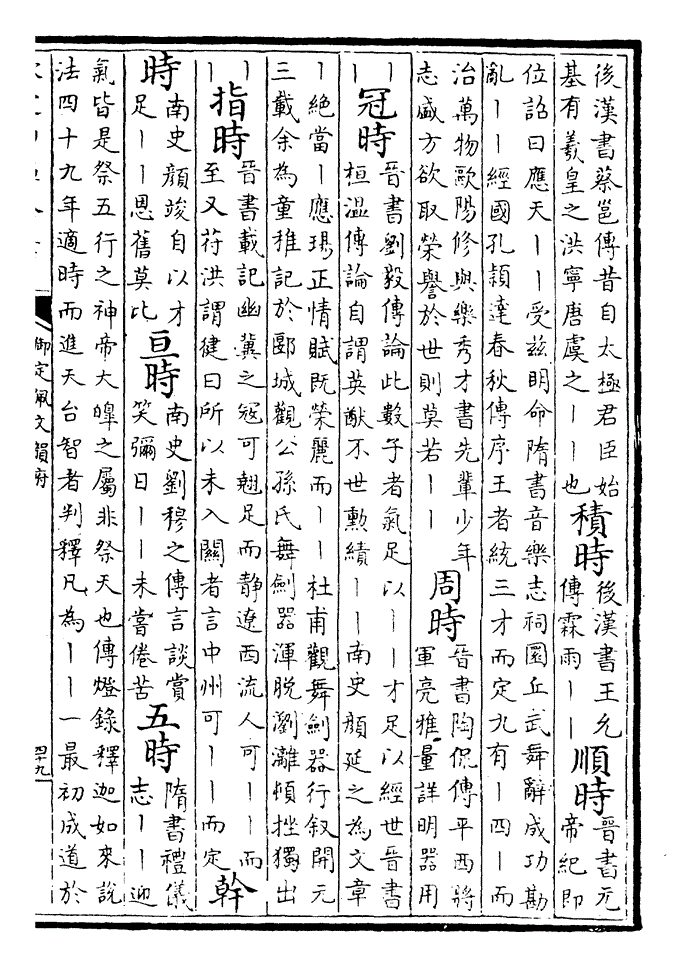 後漢書蔡邕傳昔自太極君臣始
基有羲皇之洪寧唐虞之丨丨也
積時
後漢書王允
傳霖雨丨丨
順時
晉書元
帝紀即
位詔曰應天丨丨受兹明命隋書音樂志祠圜丘武舞辭成功勘
亂丨丨經國孔穎達春秋傳序王者統三才而定九有丨四丨而
治萬物歐陽修與樂秀才書先輩少年
志盛方欲取榮譽於世則莫若丨丨
周時
晉書陶侃傳平西將
軍亮雅量詳明器用
丨丨
冠時
晉書劉毅傳論此數子者氣足以丨丨才足以經世晉書
桓温傳論自謂英猷不世勲績丨丨南史顔延之為文章
丨絶當丨應瑒正情賦既榮麗而丨丨杜甫觀舞劍器行叙開元
三載余為童稚記於郾城觀公孫氏舞劍器渾脱瀏灕頓挫獨出
丨丨
指時
晉書載記幽冀之冦可翹足而静遼西流人可丨丨而
至又苻洪謂健曰所以未入關者言中州可丨丨而定
幹
時
南史顔竣自以才
足丨丨恩舊莫比
亘時
南史劉穆之傳言談賞
笑彌日丨丨未嘗倦苦
五時
隋書禮儀
志丨丨迎
氣皆是祭五行之神帝大皥之屬非祭天也傳燈錄釋迦如來說
法四十九年適時而進天台智者判釋凡為丨丨一最初成道於
御定佩文韻府
四十九